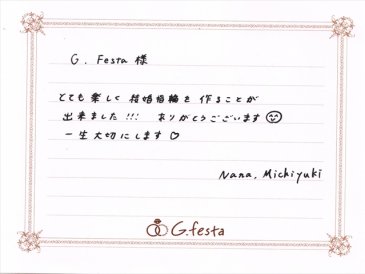 G. Festa 様
とても楽しく結婚指輪を作ることが
出来ました!!! ありがとうございます
一生大切にします♡
Nana, Michiyuki
G.festa